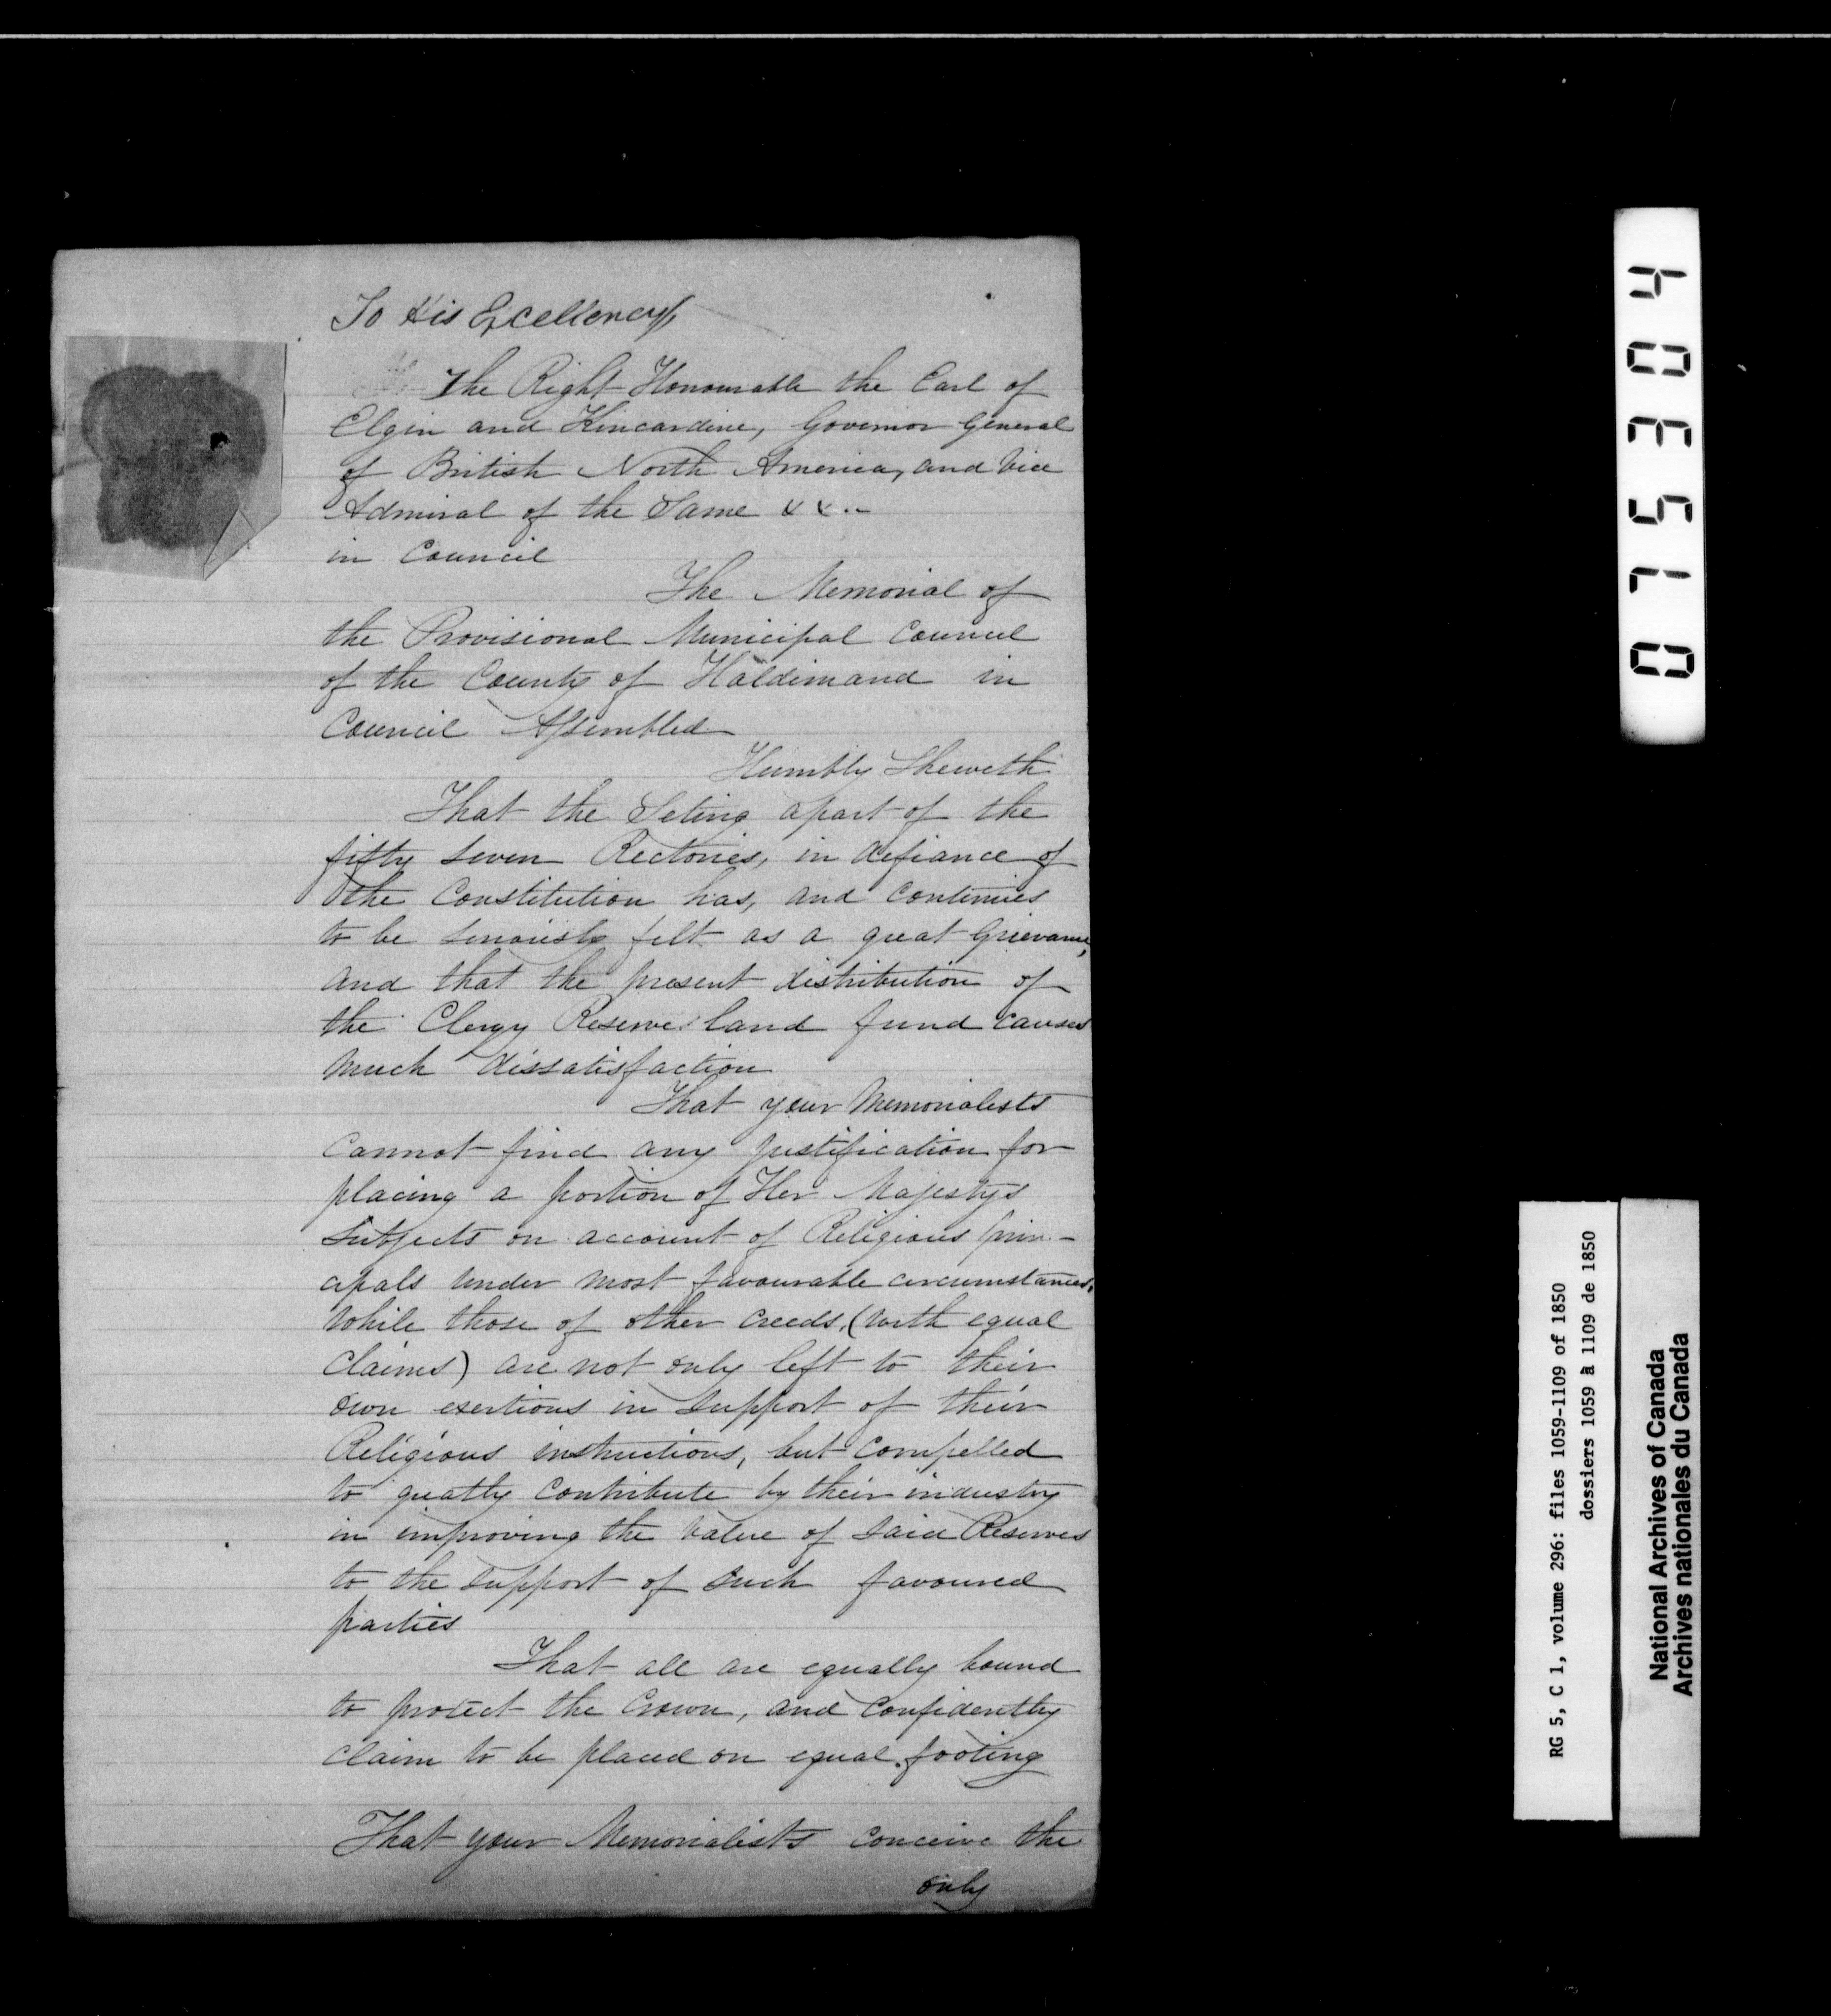 To His Excellency
The Right Honourable the Earl of
Elgin and Kincardine, Governor General
of British North America, and Vice
Admiral of the Same &c &c..
in Council
The Memorial of
the Provisional Municipal Council
of the County of Haldimand in
Council Assembled
Humbly Sheweth
That the Seting apart of the
fifty Seven Rectories, in defiance of
the Constitution has, and Continues
to be Seriously felt as a great Grievance,
and that the present distribution of
the Clergy Reserve land fund causes
much dissatisfaction
That your Memorialists
Cannot find any justification for
placing a portion of Her Majestys
Subjects on account of Religious prin-
cipals under most favourable circumstances,
While those of other creeds, (with equal
Claims) are not only left to their
own exertions in Support of their
Religious instructions, but compelled
to greatly contribute by their industry
in improving the value of Said Reserves
to the Support of Such favoured
parties
That all are equally bound
to protect the Crown, and Confidently
claim to be placed on equal footing
That your Memorialists conceive the
only
075304
RG 5, C 1, volume 296: files 1059-1109 of 1850
dossiers 1059 à 1109 de 1850
National Archives of Canada
Archives nationales du Canada